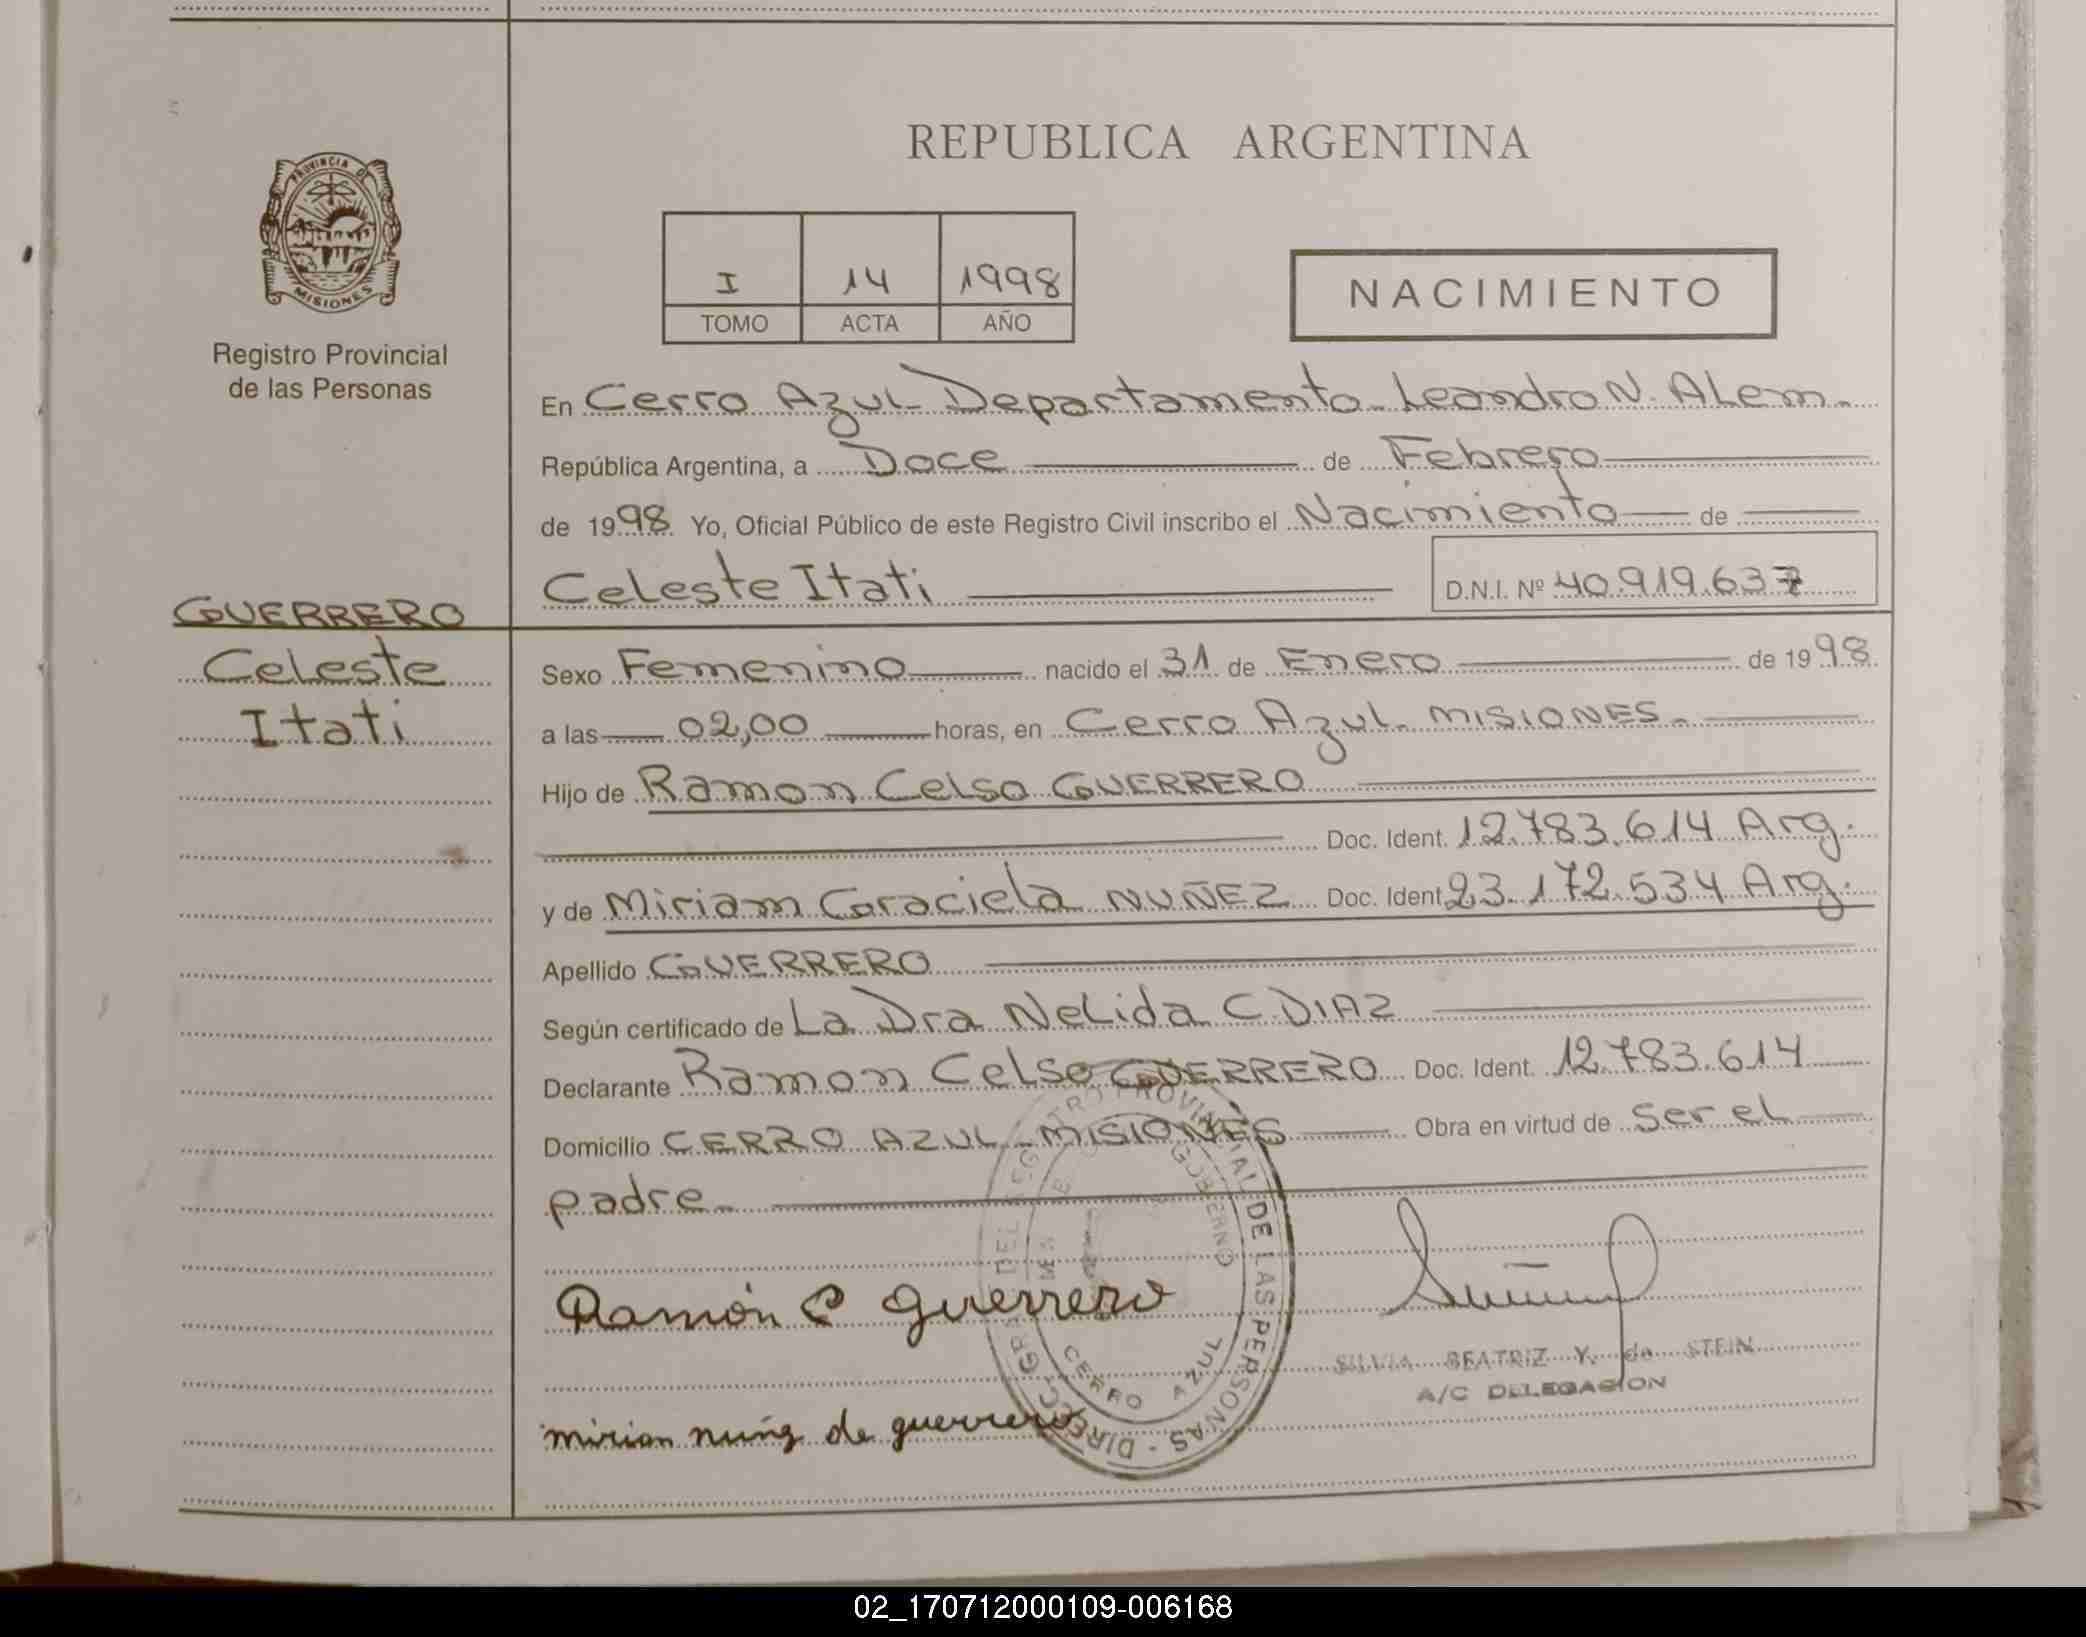 REPUBLICA ARGENTINA
PROVINCIA DE
MISIONES
Registro Provincial
de las Personas
I 14 1998
TOMO ACTA AÑO
NACIMIENTO
En Cerro Azul Departamento Leandro N. Alem.
República Argentina, a Doce de Febrero
de 1998 Yo, Oficial Público de este Registro Civil inscribo el Nacimiento de
Celeste Itati D.N.I. Nº 40.919.637
GUERRERO
Celeste
Itati
Sexo Femenino nacido el 31 de Enero de 1998
a las 02,00 horas, en Cerro Azul - MISIONES.
Hijo de Ramon Celso GUERRERO
Doc. Ident. 12.783.614 Arg.
y de Miriam Graciela NUÑEZ Doc. Ident. 23.172.534 Arg.
Apellido GUERRERO
Según certificado de La Dra Nelida C. DIAZ
Declarante Ramon Celso GUERRERO Doc. Ident. 12.783.614
Domicilio CERRO AZUL - MISIONES Obra en virtud de ser el
padre.
Ramón C Guerrero
SILVIA BEATRIZ Y. de STEIN
A/C DELEGACION
mirian nuñz de guerrero
DEL REGISTRO PROVINCIAL DE LAS PERSONAS - DIRECC. GRAL
GOBERNO
CERRO AZUL
02_170712000109-006168